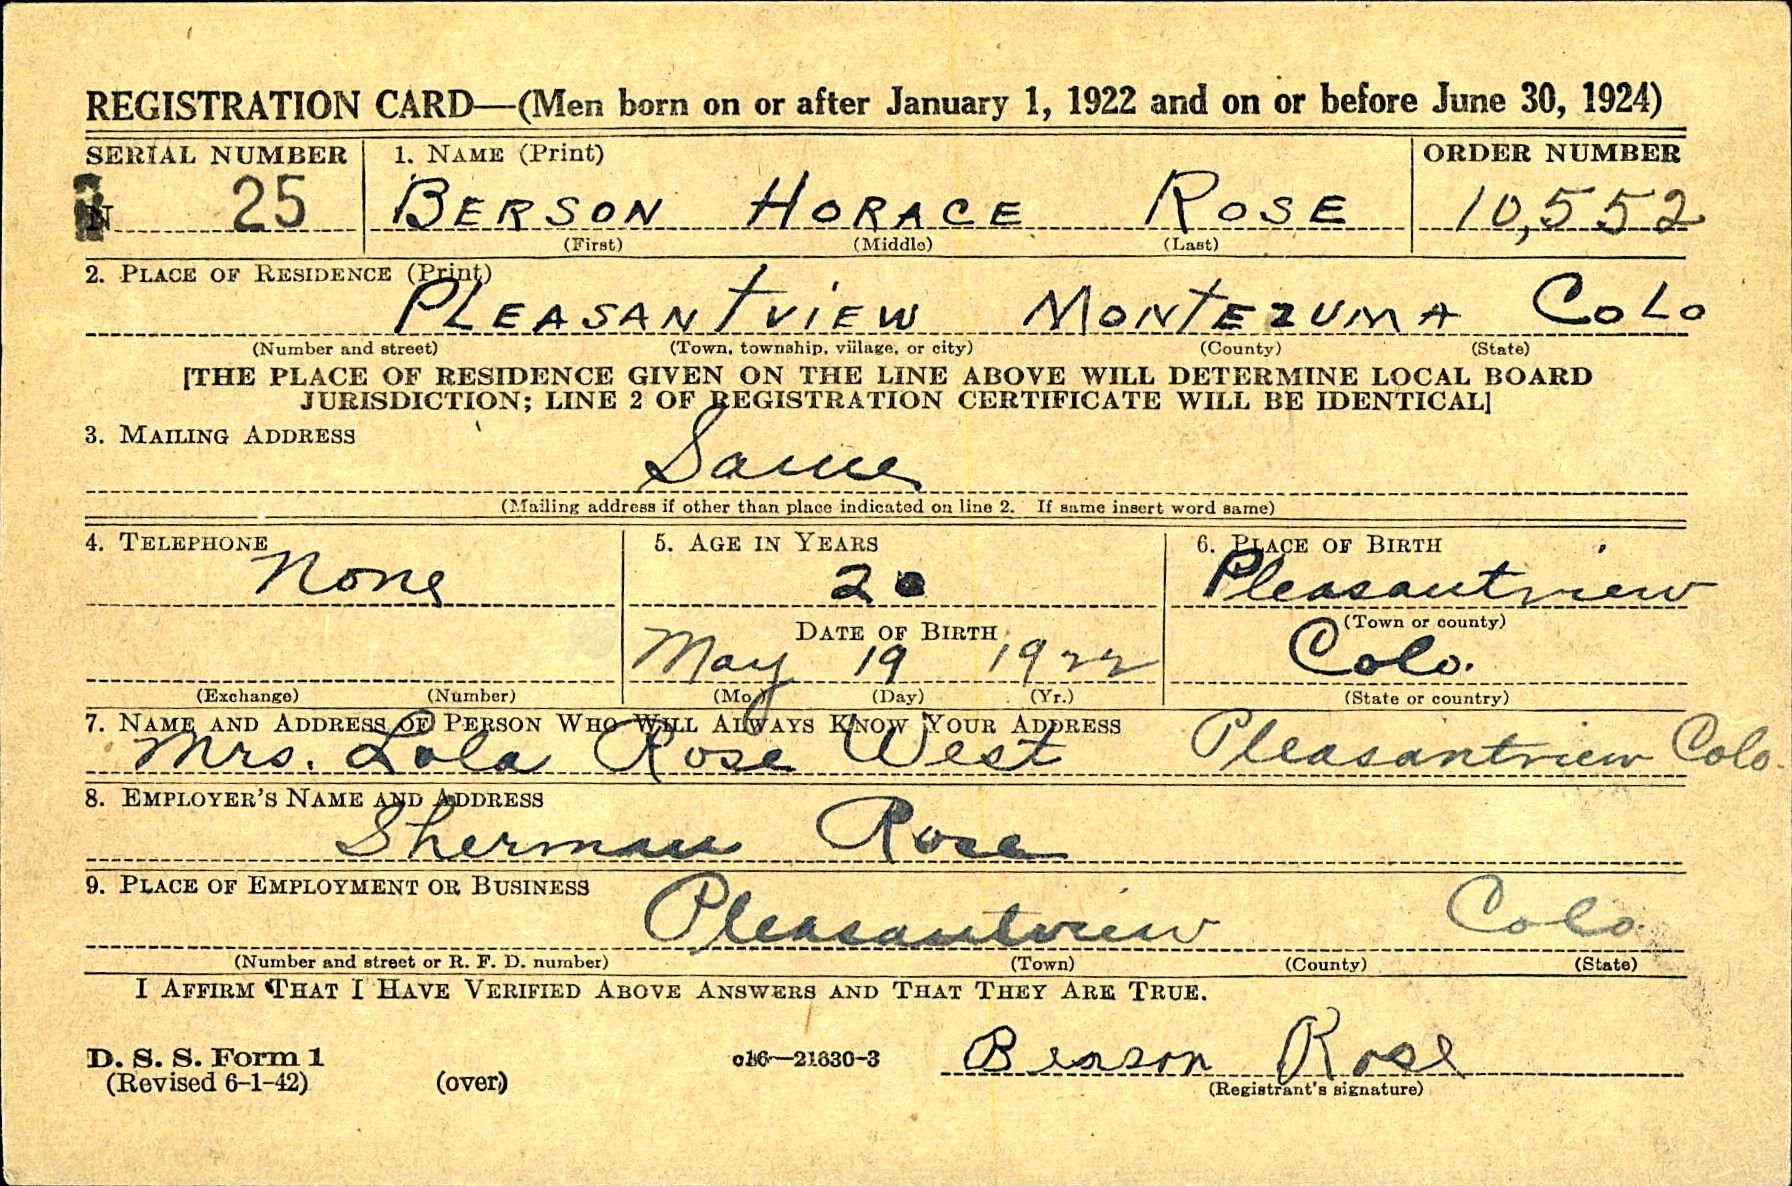 REGISTRATION CARD—(Men born on or after January 1, 1922 and on or before June 30, 1924)
SERIAL NUMBER 1. NAME (Print) ORDER NUMBER
N 25 BERSON HORACE ROSE 10,552
(First) (Middle) (Last)
2. PLACE OF RESIDENCE (Print)
PLEASANTVIEW MONTEZUMA COLO
(Number and street) (Town, township, village, or city) (County) (State)
[THE PLACE OF RESIDENCE GIVEN ON THE LINE ABOVE WILL DETERMINE LOCAL BOARD
JURISDICTION; LINE 2 OF REGISTRATION CERTIFICATE WILL BE IDENTICAL]
3. MAILING ADDRESS
Same
(Mailing address if other than place indicated on line 2. If same insert word same)
4. TELEPHONE 5. AGE IN YEARS 6. PLACE OF BIRTH
None 20 Pleasantview
DATE OF BIRTH (Town or county)
May 19 1922 Colo.
(Exchange) (Number) (Mo.) (Day) (Yr.) (State or country)
7. NAME AND ADDRESS OF PERSON WHO WILL ALWAYS KNOW YOUR ADDRESS
Mrs. Lola Rose West Pleasantview Colo.
8. EMPLOYER'S NAME AND ADDRESS
Sherman Rose
9. PLACE OF EMPLOYMENT OR BUSINESS
Pleasantview Colo.
(Number and street or R. F. D. number) (Town) (County) (State)
I AFFIRM THAT I HAVE VERIFIED ABOVE ANSWERS AND THAT THEY ARE TRUE.
D. S. S. Form 1 16—21630-3 Berson Rose
(Revised 6-1-42) (over) (Registrant's signature)